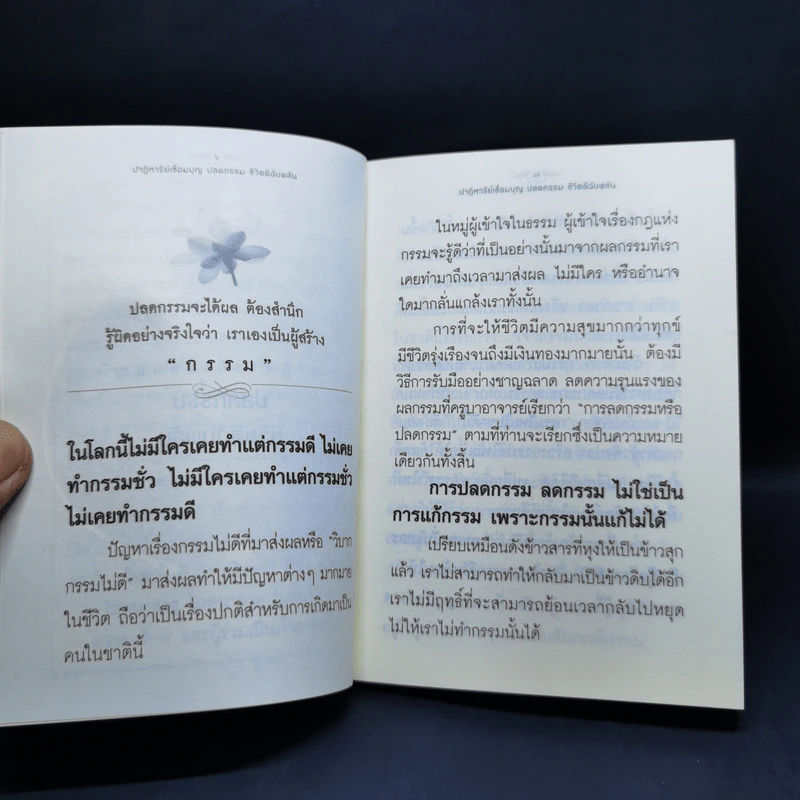 ปาฏิหาริย์เชื่อมบุญ ปลดกรรม ชีวิตดีฉับพลัน
ปลดกรรมจะได้ผล ต้องสำนึก
รู้ผิดอย่างจริงใจว่า เราเองเป็นผู้สร้าง
“กรรม”
ในโลกนี้ไม่มีใครเคยทำแต่กรรมดี ไม่เคย
ทำกรรมชั่ว ไม่มีใครเคยทำแต่กรรมชั่ว
ไม่เคยทำกรรมดี
ปัญหาเรื่องกรรมไม่ดีที่มาส่งผลหรือ “วิบาก
กรรมไม่ดี” มาส่งผลทำให้มีปัญหาต่างๆ มากมาย
ในชีวิต ถือว่าเป็นเรื่องปกติสำหรับการเกิดมาเป็น
คนในชาตินี้
ปาฏิหาริย์เชื่อมบุญ ปลดกรรม ชีวิตดีฉับพลัน
ในหมู่ผู้เข้าใจในธรรม ผู้เข้าใจเรื่องกฎแห่ง
กรรมจะรู้ดีว่าที่เป็นอย่างนั้นมาจากผลกรรมที่เรา
เคยทำมาถึงเวลามาส่งผล ไม่มีใคร หรืออำนาจ
ใดมากลั่นแกล้งเราทั้งนั้น
การที่จะให้ชีวิตมีความสุขมากกว่าทุกข์
มีชีวิตรุ่งเรืองจนถึงมีเงินทองมากมายนั้น ต้องมี
วิธีการรับมืออย่างชาญฉลาด ลดความรุนแรงของ
ผลกรรมที่ครูบาอาจารย์เรียกว่า “การลดกรรมหรือ
ปลดกรรม” ตามที่ท่านจะเรียกซึ่งเป็นความหมาย
เดียวกันทั้งสิ้น
การปลดกรรม ลดกรรม ไม่ใช่เป็น
การแก้กรรม เพราะกรรมนั้นแก้ไม่ได้
เปรียบเหมือนดังข้าวสารที่หุงให้เป็นข้าวสุก
แล้ว เราไม่สามารถทำให้กลับมาเป็นข้าวดิบได้อีก
เราไม่มีฤทธิ์ที่จะสามารถย้อนเวลากลับไปหยุด
ไม่ให้เราไม่ทำกรรมนั้นได้